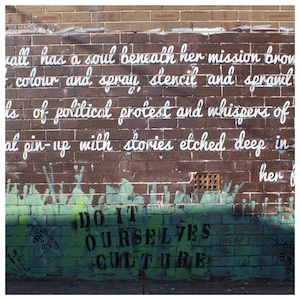 wall has a soul beneath her mission brow
colour and spray, stencil and sprawl
ls of political protest and whispers of
al pin-up with stories etched deep in
her f
DO IT
OURSELVES
CULTURE